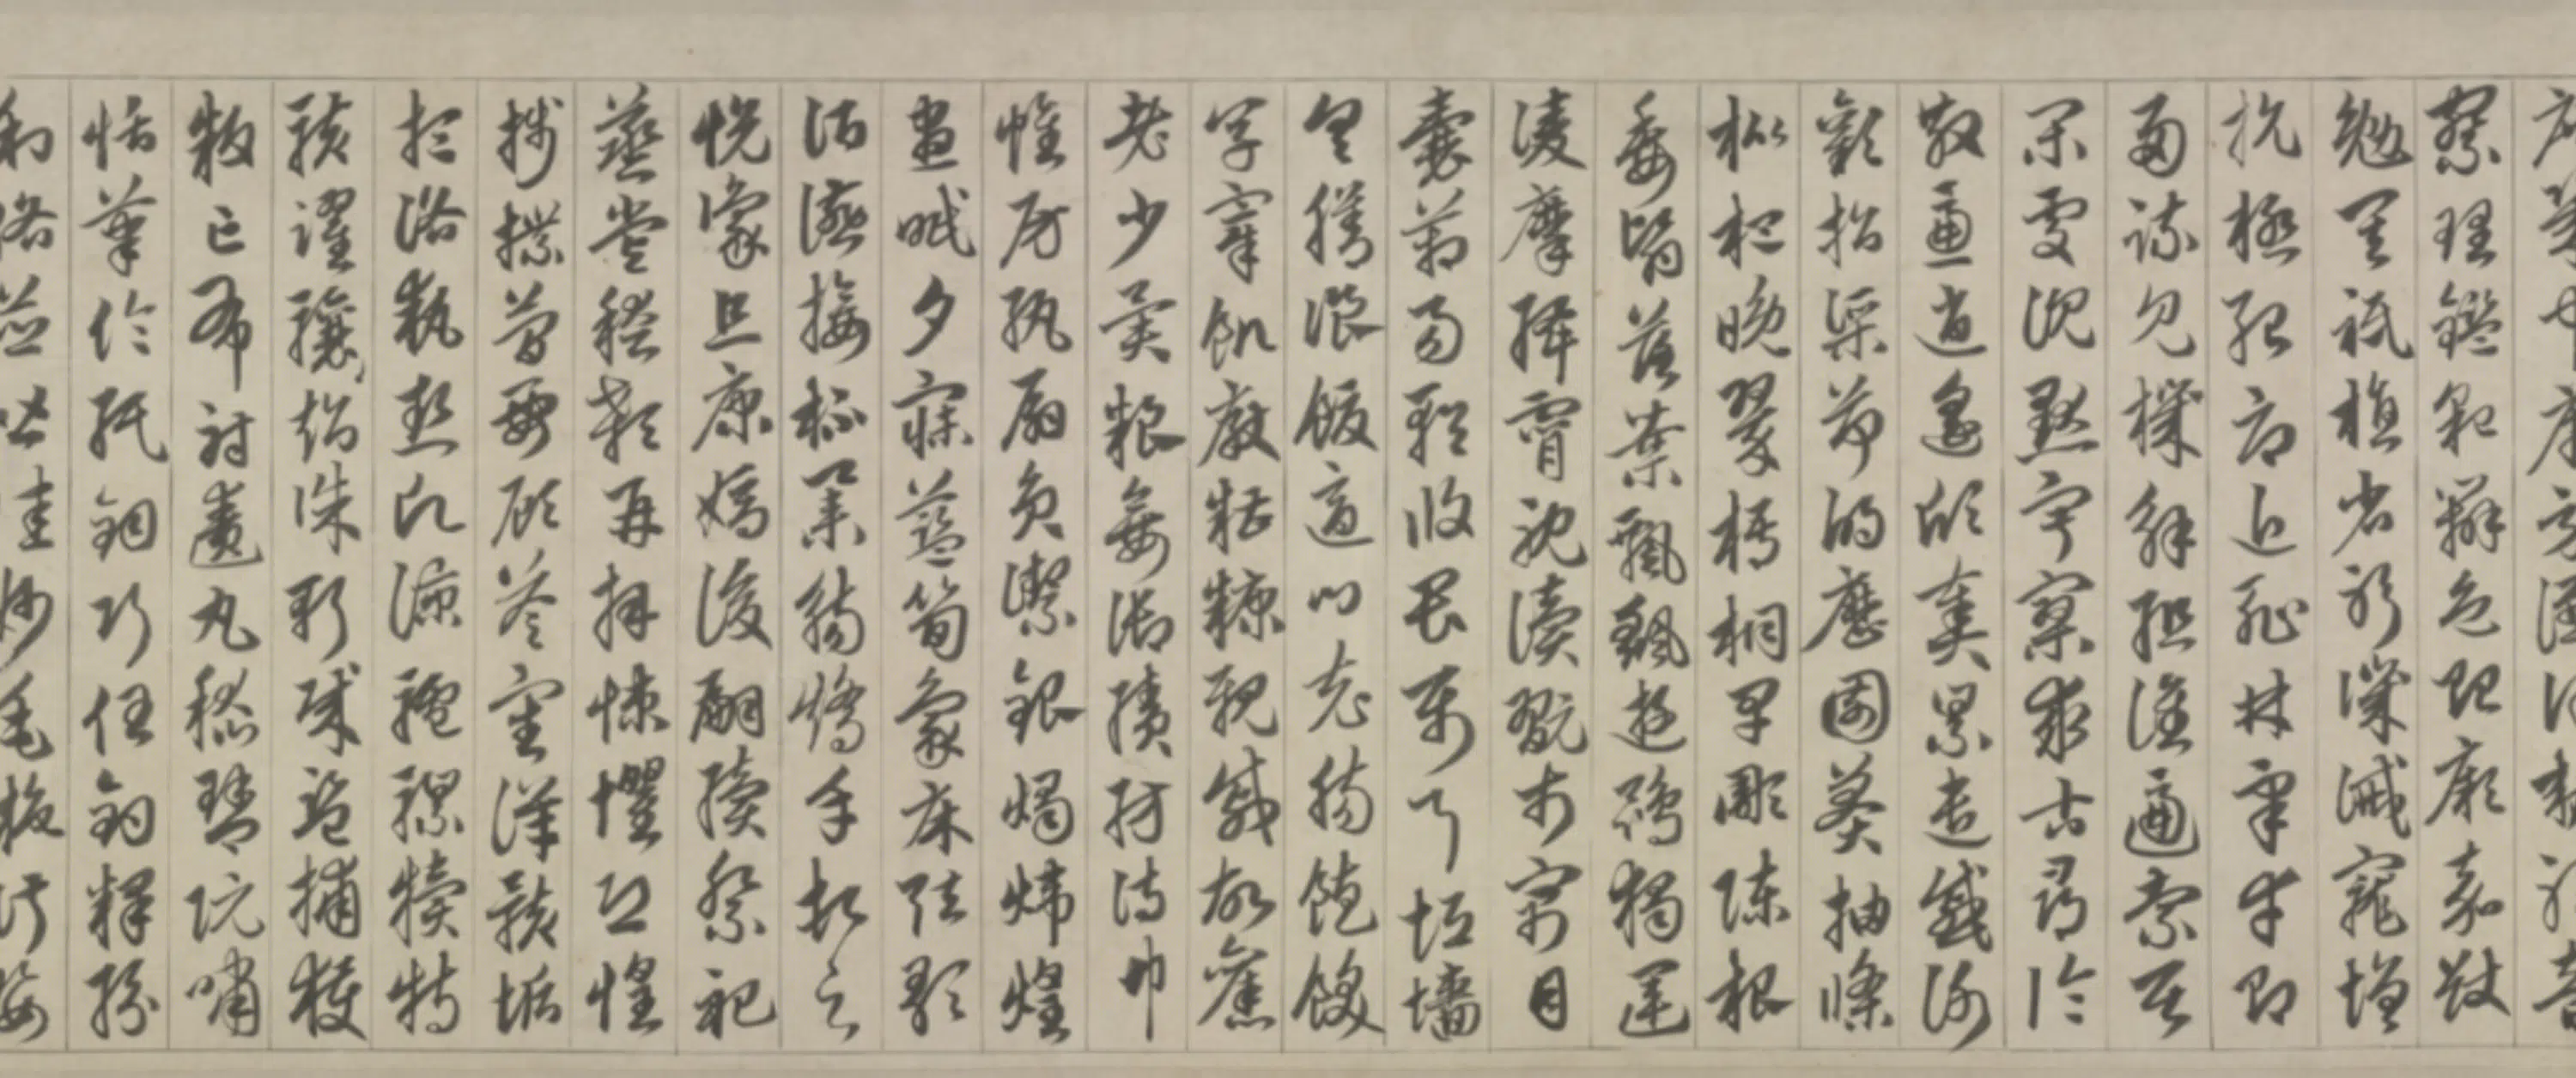 庶幾中庸勞謙謹敕聆音
察理鑑貌辨色貽厥嘉猷
勉其祗植省躬譏誡寵增
抗極殆辱近恥林皋幸即
兩疏見機解組誰逼索居
閑處沉默寂寥求古尋論
散慮逍遙欣奏累遣慼謝
歡招渠荷的歷園莽抽條
枇杷晚翠梧桐早彫陳根
委翳落葉飄颻遊鵾獨運
凌摩絳霄耽讀翫市寓目
囊箱易輶攸畏屬耳垣墻
具膳湌飯適口充腸飽飫
烹宰飢厭糟糠親戚故舊
老少異糧妾御績紡侍巾
帷房紈扇員潔銀燭煒煌
晝眠夕寐藍筍象床弦歌
酒讌接杯舉觴矯手頓足
悅豫且康嫡後嗣續祭祀
蒸嘗稽顙再拜悚懼恐惶
牋牒簡要顧答審詳骸垢
想浴執熱願涼驢騾犢特
駭躍驤超誅斬賊盜捕獲
叛亡布射遼丸嵇琴阮嘯
恬筆倫紙鈞巧任釣釋紛
利俗並皆佳妙毛施淑姿